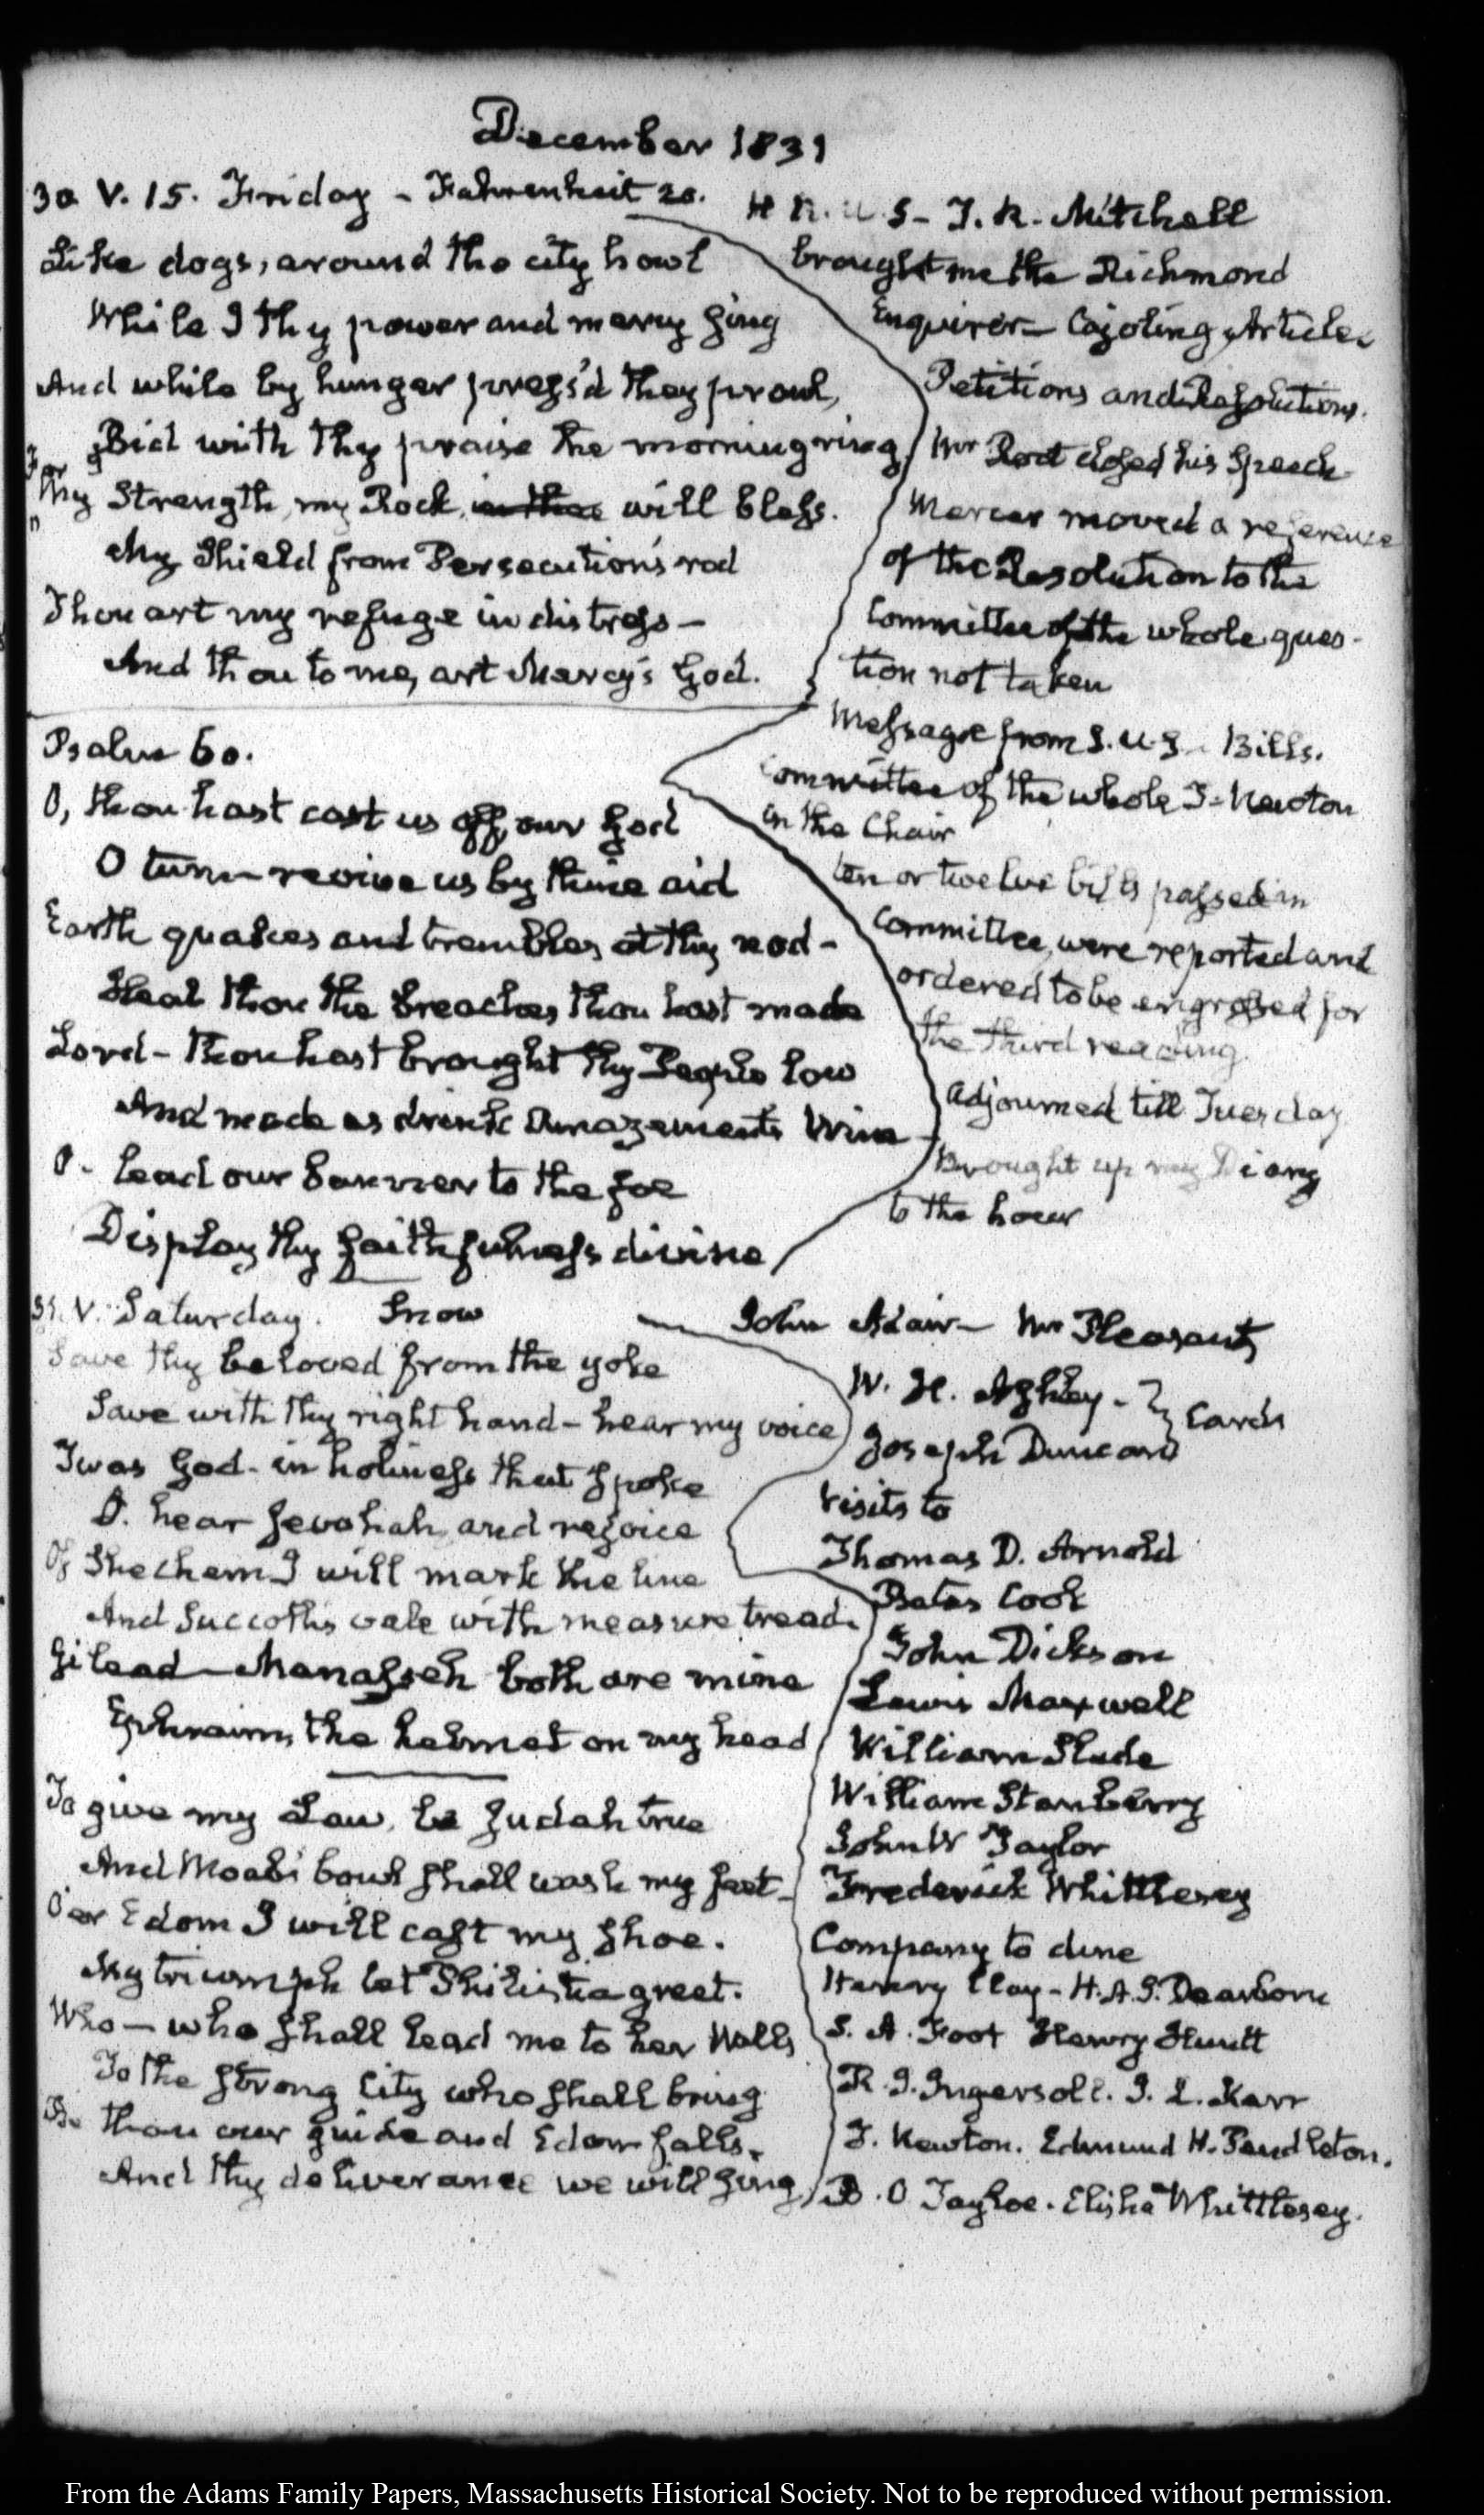 December 1831
30. V. 15. Friday - Fahrenheit 20.
Like dogs, around the city howl
While I thy power and mercy sing
And while by hunger press'd they prowl,
Bid with thy praise the morning ring
For
Thy Strength, my Rock, will bless.
My Shield from Persecution's rod
Thou art my refuge in distress -
And thou to me, art Mercy's God.
Psalm 60.
O, thou hast cast us off, our God
O turn revive us by thine aid
Earth quakes and trembles at thy nod -
Heal thou the breaches, thou hast made
Lord - Thou hast brought thy People low
And made us drink Amazement's Wine
O - lead our banner to the foe
Display thy faithfulness divine
H R. U S - T. R. Mitchell
brought me the Richmond
Enquirer - Cajoling Articles
Petitions and Resolutions.
Mr Root closed his Speech
Mercer moved a reference
of the Resolution to the
Committee of the whole ques-
tion not taken
Message from S. U. S - Bills.
Committee of the whole T. Newton
in the Chair
ten or twelve bills passed in
Committee, were reported and
ordered to be engrossed for
the third reading
adjourned till Tuesday
Brought up my Diary
to the hour
31. V. Saturday. Snow
Save thy beloved from the yoke
Save with thy right hand - hear my voice
Twas God - in holiness that spoke
O. hear Jevohah, and rejoice
Of Shechem I will mark the line
And Succoth's vale with measure tread.
Gilead - Manasseh both are mine
Ephraim, the helmet on my head
To give my Law, be Judah true
And Moab's bowl shall wash my feet -
O'er Edom I will cast my shoe.
My triumph let Philistia greet.
Who - who shall lead me to her Walls
To the strong City who shall bring
Be thou our guide and Edom falls.
And thy deliverance we will sing
John Adair - Mr Pleasants
W. H. Ashley -
Joseph Duncan
} Cards
Visits to
Thomas D. Arnold
Bates Cook
John Dickson
Lewis Maxwell
William Slade
William Stanberry
John W Taylor
Frederick Whittlesey
Company to dine
Henry Clay - H. A. S. Dearborn
S. A. Foot Henry Hewitt
R. I. Ingersoll. J. L. Kerr
T. Newton. Edmund H. Pendleton.
B. O Tayloe. Elisha Whittlesey.
From the Adams Family Papers, Massachusetts Historical Society. Not to be reproduced without permission.